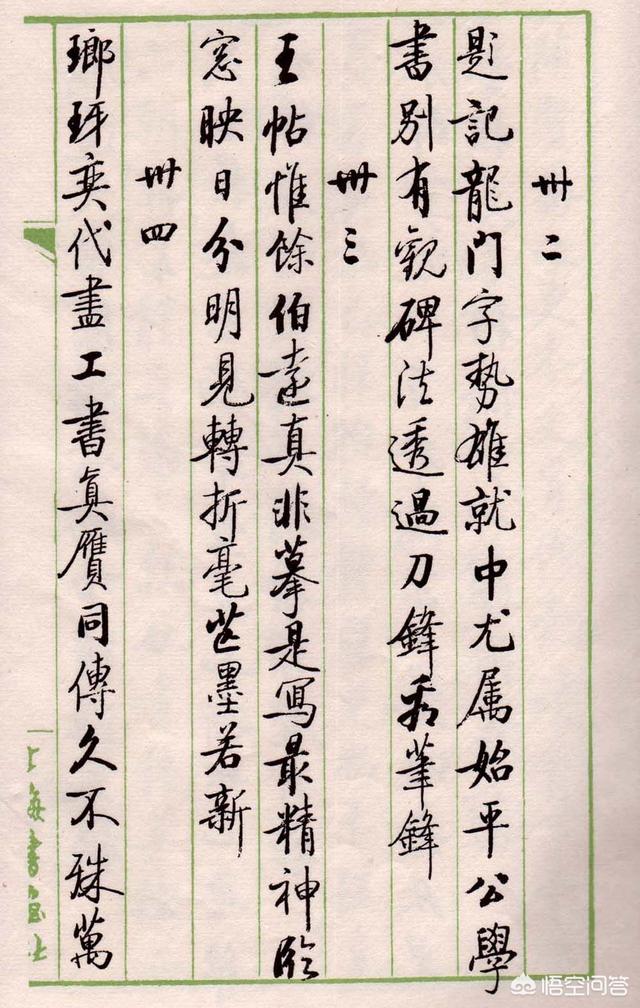 卅二
題記龍門字勢雄就中尤属始平公學
書別有觀碑法透過刀鋒看筆鋒
卅三
王帖惟餘伯遠真非摹是寫最精神臨
窓映日分明見轉折毫芒墨若新
卅四
瑯玡奕代盡工書真贋同傳久不殊萬
上海書画社
悟空问答